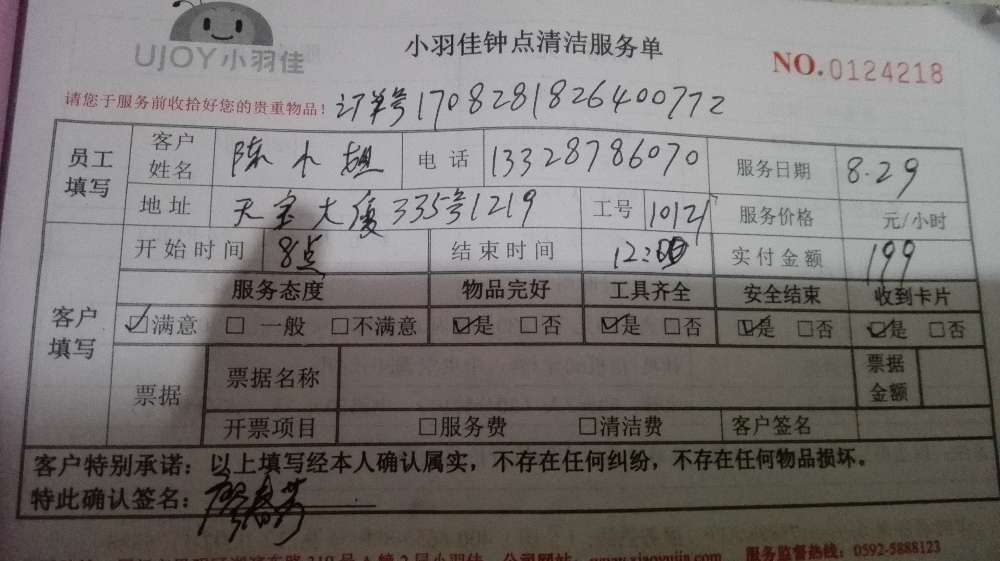 UJOY小羽佳
小羽佳钟点清洁服务单
NO.0124218
请您于服务前收拾好您的贵重物品！ 订单号170828182640077２
员工填写 客户姓名 陈小姐 电话 13328786070 服务日期 8.29
地址 天宝大厦335号1219 工号 10121 服务价格 元/小时
客户填写 开始时间 8点 结束时间 12:00 实付金额 199
服务态度 物品完好 工具齐全 安全结束 收到卡片
☑满意 □一般 □不满意 ☑是 □否 ☑是 □否 ☑是 □否 ☑是 □否
票据 票据名称 票据金额
开票项目 □服务费 □清洁费 客户签名
客户特别承诺：以上填写经本人确认属实，不存在任何纠纷，不存在任何物品损坏。
特此确认签名：
小羽佳 公司网站：www.xiaoyujia.com 服务监督热线：0592-5888123